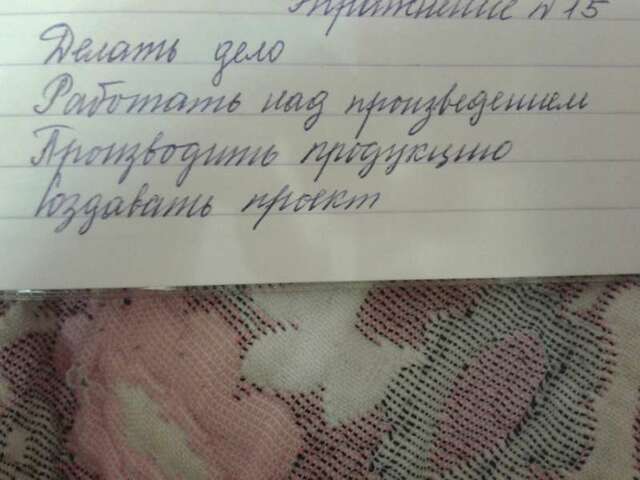 Упражнение №15
Делать дело
Работать над произведением
Производить продукцию
Создавать проект